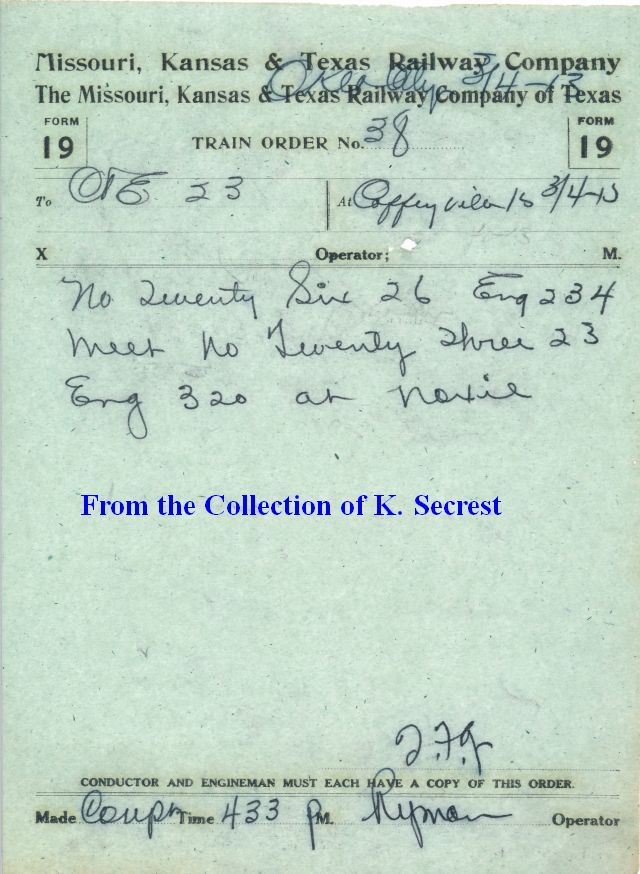 Missouri, Kansas & Texas Railway Company
Okla City 3/4-13
The Missouri, Kansas & Texas Railway Company of Texas
FORM 19
TRAIN ORDER No. 38
FORM 19
To C&E 23 At Coffeyville Ks 3/4-13
X Operator; M.
No Twenty Six 26 Eng 234
meet No Twenty Three 23
Eng 320 at Noxie
From the Collection of K. Secrest
CONDUCTOR AND ENGINEMAN MUST EACH HAVE A COPY OF THIS ORDER.
Made Time 433 p M. Ryman Operator